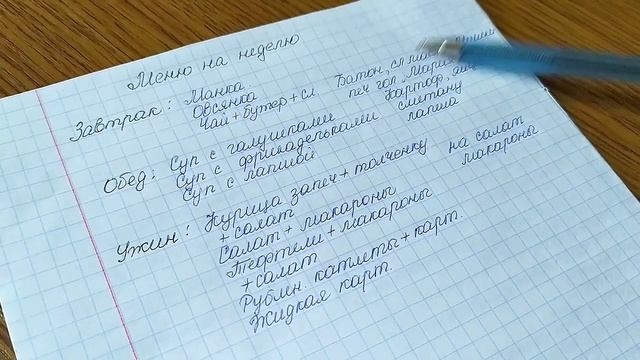 Меню на неделю
Завтрак: Манка
Овсянка
Чай + бутер + сл
Батон, сл
печ гол
Картоф, яйц
сметану
лапша
на салат
макароны
Обед: Суп с галушками
Суп с фрикадельками
Суп с лапшой
Ужин: Курица запеч + толченку
+ салат
Салат + макароны
Тефтели + макароны
+ салат
Рублн. катлеты + карт.
Жидкая карт.